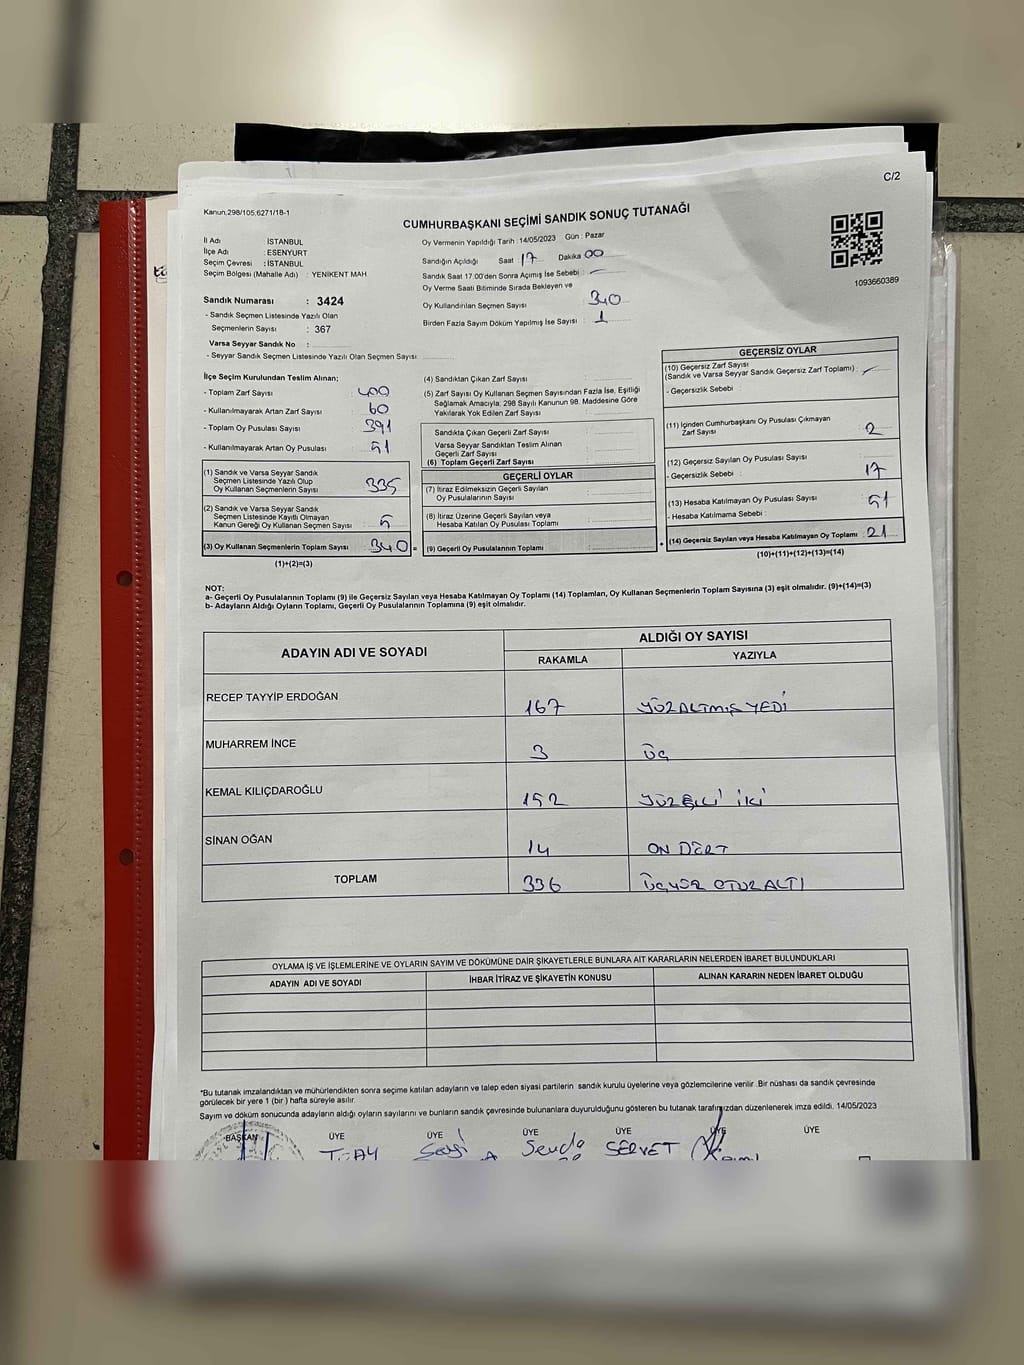 C/2
Kanun,298/105,6271/18-1
CUMHURBAŞKANI SEÇİMİ SANDIK SONUÇ TUTANAĞI
İl Adı : İSTANBUL
İlçe Adı : ESENYURT
Seçim Çevresi : İSTANBUL
Seçim Bölgesi (Mahalle Adı) : YENİKENT MAH
Sandık Numarası : 3424
- Sandık Seçmen Listesinde Yazılı Olan
Seçmenlerin Sayısı : 367
Varsa Seyyar Sandık No :
- Seyyar Sandık Seçmen Listesinde Yazılı Olan Seçmen Sayısı:
Oy Vermenin Yapıldığı Tarih : 14/05/2023 Gün : Pazar
Sandığın Açıldığı Saat 17 Dakika 00
Sandık Saat 17.00'den Sonra Açımış İse Sebebi :
Oy Verme Saati Bitiminde Sırada Bekleyen ve
Oy Kullandırılan Seçmen Sayısı 340
Birden Fazla Sayım Döküm Yapılmış İse Sayısı : 1
1093660389
İlçe Seçim Kurulundan Teslim Alınan;
- Toplam Zarf Sayısı 400
- Kullanılmayarak Artan Zarf Sayısı 60
- Toplam Oy Pusulası Sayısı 391
- Kullanılmayarak Artan Oy Pusulası 51
(1) Sandık ve Varsa Seyyar Sandık
Seçmen Listesinde Yazılı Olup
Oy Kullanan Seçmenlerin Sayısı 335
(2) Sandık ve Varsa Seyyar Sandık
Seçmen Listesinde Kayıtlı Olmayan
Kanun Gereği Oy Kullanan Seçmen Sayısı 5
(3) Oy Kullanan Seçmenlerin Toplam Sayısı 340 =
(1)+(2)=(3)
(4) Sandıktan Çıkan Zarf Sayısı :
(5) Zarf Sayısı Oy Kullanan Seçmen Sayısından Fazla İse, Eşitliği
Sağlamak Amacıyla; 298 Sayılı Kanunun 98. Maddesine Göre
Yakılarak Yok Edilen Zarf Sayısı :
Sandıkta Çıkan Geçerli Zarf Sayısı :
Varsa Seyyar Sandıktan Teslim Alınan
Geçerli Zarf Sayısı :
(6) Toplam Geçerli Zarf Sayısı :
GEÇERLİ OYLAR
(7) İtiraz Edilmeksizin Geçerli Sayılan
Oy Pusulalarının Sayısı :
(8) İtiraz Üzerine Geçerli Sayılan veya
Hesaba Katılan Oy Pusulası Toplamı :
(9) Geçerli Oy Pusulalarının Toplamı : +
GEÇERSİZ OYLAR
(10) Geçersiz Zarf Sayısı
(Sandık ve Varsa Seyyar Sandık Geçersiz Zarf Toplamı) :
- Geçersizlik Sebebi :
(11) İçinden Cumhurbaşkanı Oy Pusulası Çıkmayan
Zarf Sayısı : 2
(12) Geçersiz Sayılan Oy Pusulası Sayısı :
- Geçersizlik Sebebi : 17
(13) Hesaba Katılmayan Oy Pusulası Sayısı : 51
- Hesaba Katılmama Sebebi :
(14) Geçersiz Sayılan veya Hesaba Katılmayan Oy Toplamı : 21
(10)+(11)+(12)+(13)=(14)
NOT:
a- Geçerli Oy Pusulalarının Toplamı (9) ile Geçersiz Sayılan veya Hesaba Katılmayan Oy Toplamı (14) Toplamları, Oy Kullanan Seçmenlerin Toplam Sayısına (3) eşit olmalıdır. (9)+(14)=(3)
b- Adayların Aldığı Oyların Toplamı, Geçerli Oy Pusulalarının Toplamına (9) eşit olmalıdır.
ADAYIN ADI VE SOYADI ALDIĞI OY SAYISI
RAKAMLA YAZIYLA
RECEP TAYYİP ERDOĞAN 167 YÜZALTMIŞ YEDİ
MUHARREM İNCE 3 ÜÇ
KEMAL KILIÇDAROĞLU 152 YÜZELLİ İKİ
SİNAN OĞAN 14 ON DÖRT
TOPLAM 336 ÜÇYÜZ OTUZ ALTI
OYLAMA İŞ VE İŞLEMLERİNE VE OYLARIN SAYIM VE DÖKÜMÜNE DAİR ŞİKAYETLERLE BUNLARA AİT KARARLARIN NELERDEN İBARET BULUNDUKLARI
ADAYIN ADI VE SOYADI İHBAR İTİRAZ VE ŞİKAYETİN KONUSU ALINAN KARARIN NEDEN İBARET OLDUĞU
*Bu tutanak imzalandıktan ve mühürlendikten sonra seçime katılan adayların ve talep eden siyasi partilerin sandık kurulu üyelerine veya gözlemcilerine verilir .Bir nüshası da sandık çevresinde
görülecek bir yere 1 (bir ) hafta süreyle asılır.
Sayım ve döküm sonucunda adayların aldığı oyların sayılarını ve bunların sandık çevresinde bulunanlara duyurulduğunu gösteren bu tutanak tarafımızdan düzenlenerek imza edildi. 14/05/2023
BAŞKAN ÜYE ÜYE ÜYE ÜYE ÜYE ÜYE
Sevda SERVET